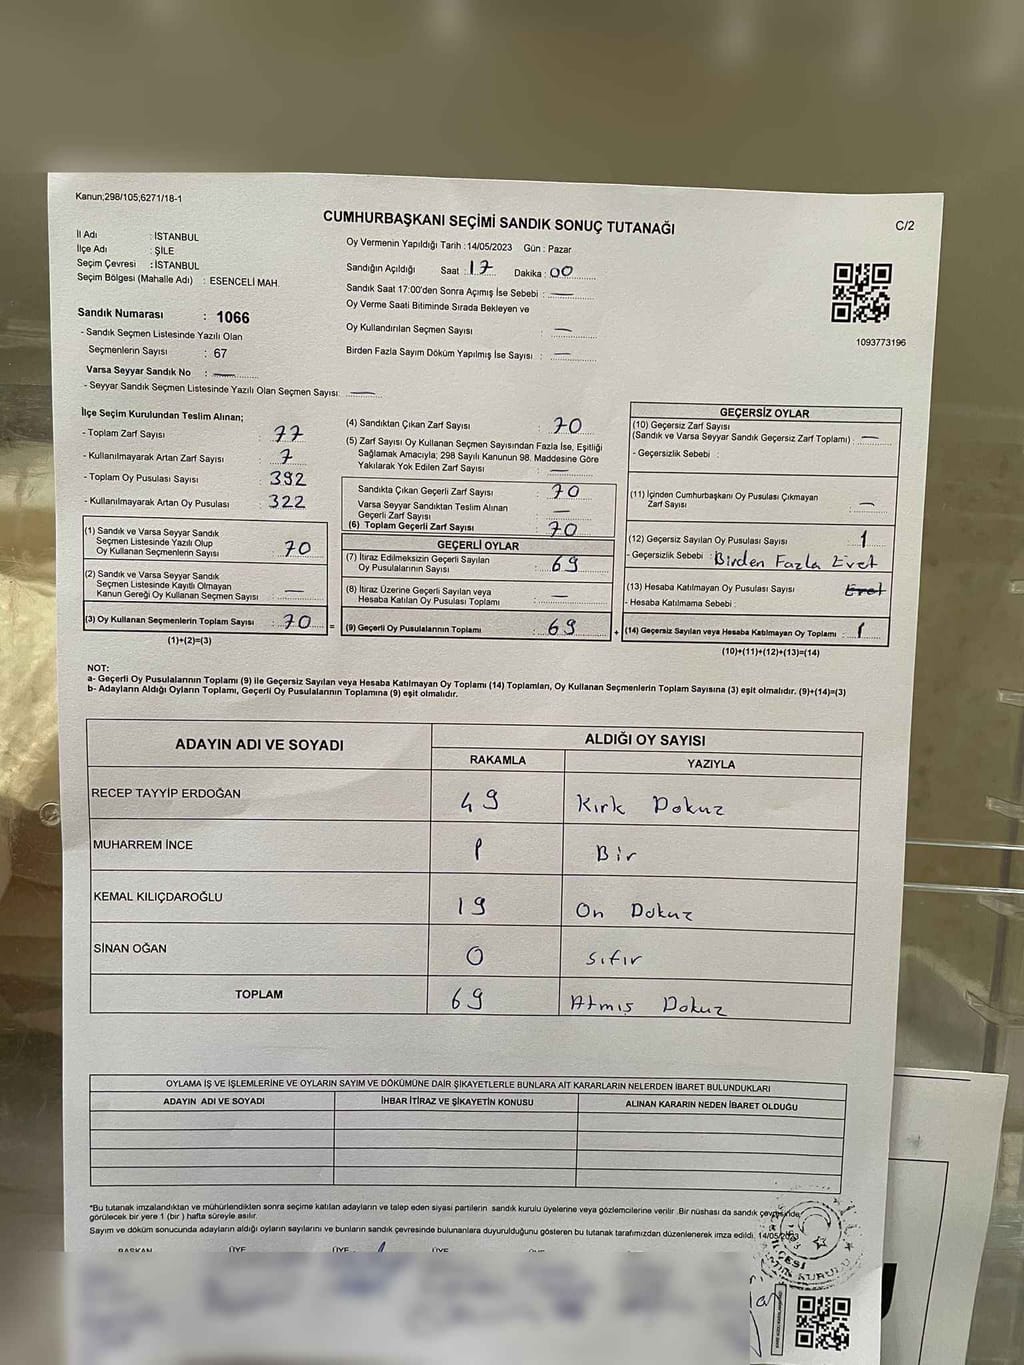 Kanun;298/105,6271/18-1
CUMHURBAŞKANI SEÇİMİ SANDIK SONUÇ TUTANAĞI
C/2
İl Adı : İSTANBUL
İlçe Adı : ŞİLE
Seçim Çevresi : İSTANBUL
Seçim Bölgesi (Mahalle Adı) : ESENCELİ MAH.
Oy Vermenin Yapıldığı Tarih : 14/05/2023 Gün : Pazar
Sandığın Açıldığı Saat : 17 Dakika : 00
Sandık Saat 17:00'den Sonra Açımış İse Sebebi : —
Oy Verme Saati Bitiminde Sırada Bekleyen ve
Oy Kullandırılan Seçmen Sayısı : —
Birden Fazla Sayım Döküm Yapılmış İse Sayısı : —
1093773196
Sandık Numarası : 1066
- Sandık Seçmen Listesinde Yazılı Olan
Seçmenlerin Sayısı : 67
Varsa Seyyar Sandık No : —
- Seyyar Sandık Seçmen Listesinde Yazılı Olan Seçmen Sayısı: —
İlçe Seçim Kurulundan Teslim Alınan;
- Toplam Zarf Sayısı : 77
- Kullanılmayarak Artan Zarf Sayısı : 7
- Toplam Oy Pusulası Sayısı : 392
- Kullanılmayarak Artan Oy Pusulası : 322
(1) Sandık ve Varsa Seyyar Sandık
Seçmen Listesinde Yazılı Olup
Oy Kullanan Seçmenlerin Sayısı : 70
(2) Sandık ve Varsa Seyyar Sandık
Seçmen Listesinde Kayıtlı Olmayan
Kanun Gereği Oy Kullanan Seçmen Sayısı : —
(3) Oy Kullanan Seçmenlerin Toplam Sayısı : 70 =
(1)+(2)=(3)
(4) Sandıktan Çıkan Zarf Sayısı : 70
(5) Zarf Sayısı Oy Kullanan Seçmen Sayısından Fazla İse, Eşitliği
Sağlamak Amacıyla; 298 Sayılı Kanunun 98. Maddesine Göre
Yakılarak Yok Edilen Zarf Sayısı : —
Sandıkta Çıkan Geçerli Zarf Sayısı : 70
Varsa Seyyar Sandıktan Teslim Alınan
Geçerli Zarf Sayısı : —
(6) Toplam Geçerli Zarf Sayısı : 70
GEÇERLİ OYLAR
(7) İtiraz Edilmeksizin Geçerli Sayılan
Oy Pusulalarının Sayısı : 69
(8) İtiraz Üzerine Geçerli Sayılan veya
Hesaba Katılan Oy Pusulası Toplamı : —
(9) Geçerli Oy Pusulalarının Toplamı : 69 +
GEÇERSİZ OYLAR
(10) Geçersiz Zarf Sayısı
(Sandık ve Varsa Seyyar Sandık Geçersiz Zarf Toplamı) : —
- Geçersizlik Sebebi :
(11) İçinden Cumhurbaşkanı Oy Pusulası Çıkmayan
Zarf Sayısı : —
(12) Geçersiz Sayılan Oy Pusulası Sayısı : 1
- Geçersizlik Sebebi : Birden Fazla Evet
(13) Hesaba Katılmayan Oy Pusulası Sayısı : Evet
- Hesaba Katılmama Sebebi :
(14) Geçersiz Sayılan veya Hesaba Katılmayan Oy Toplamı : 1
(10)+(11)+(12)+(13)=(14)
NOT:
a- Geçerli Oy Pusulalarının Toplamı (9) ile Geçersiz Sayılan veya Hesaba Katılmayan Oy Toplamı (14) Toplamları, Oy Kullanan Seçmenlerin Toplam Sayısına (3) eşit olmalıdır. (9)+(14)=(3)
b- Adayların Aldığı Oyların Toplamı, Geçerli Oy Pusulalarının Toplamına (9) eşit olmalıdır.
ADAYIN ADI VE SOYADI ALDIĞI OY SAYISI
RAKAMLA YAZIYLA
RECEP TAYYİP ERDOĞAN 49 Kırk Dokuz
MUHARREM İNCE 1 Bir
KEMAL KILIÇDAROĞLU 19 On Dokuz
SİNAN OĞAN 0 Sıfır
TOPLAM 69 Atmış Dokuz
OYLAMA İŞ VE İŞLEMLERİNE VE OYLARIN SAYIM VE DÖKÜMÜNE DAİR ŞİKAYETLERLE BUNLARA AİT KARARLARIN NELERDEN İBARET BULUNDUKLARI
ADAYIN ADI VE SOYADI İHBAR İTİRAZ VE ŞİKAYETİN KONUSU ALINAN KARARIN NEDEN İBARET OLDUĞU
*Bu tutanak imzalandıktan ve mühürlendikten sonra seçime katılan adayların ve talep eden siyasi partilerin sandık kurulu üyelerine veya gözlemcilerine verilir .Bir nüshası da sandık çevresinde
görülecek bir yere 1 (bir ) hafta süreyle asılır.
Sayım ve döküm sonucunda adayların aldığı oyların sayılarını ve bunların sandık çevresinde bulunanlara duyurulduğunu gösteren bu tutanak tarafımızdan düzenlenerek imza edildi. 14/05/2023
BAŞKAN ÜYE ÜYE ÜYE
İLÇESİ
SANDIK KURULU